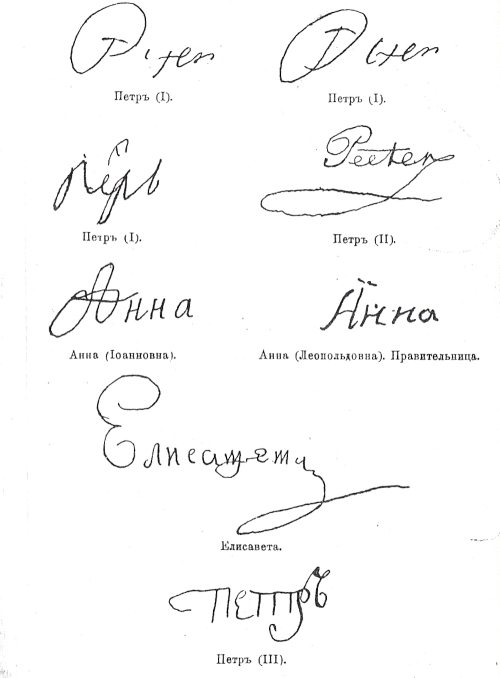 Piter Piter
Петръ (I). Петръ (I).
Петръ (I). Петръ (II).
Анна Анна
Анна (Іоанновна). Анна (Леопольдовна). Правительница.
Елисавета.
Петръ
Петръ (III).